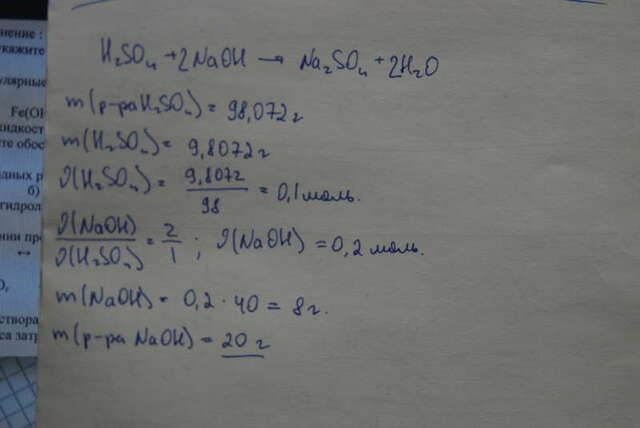 нение :
кажите
улярные
Fe(OH
идкост
те обос
дных р
б)
гидрол
нии пре
↔
О,
створа
са затр
H₂SO₄ + 2NaOH → Na₂SO₄ + 2H₂O
m(р-ра H₂SO₄) = 98,072 г
m(H₂SO₄) = 9,8072 г
ν(H₂SO₄) = 9,8072/98 = 0,1 моль.
ν(NaOH)/ν(H₂SO₄) = 2/1 ; ν(NaOH) = 0,2 моль.
m(NaOH) = 0,2 · 40 = 8 г.
m(р-ра NaOH) = 20 г